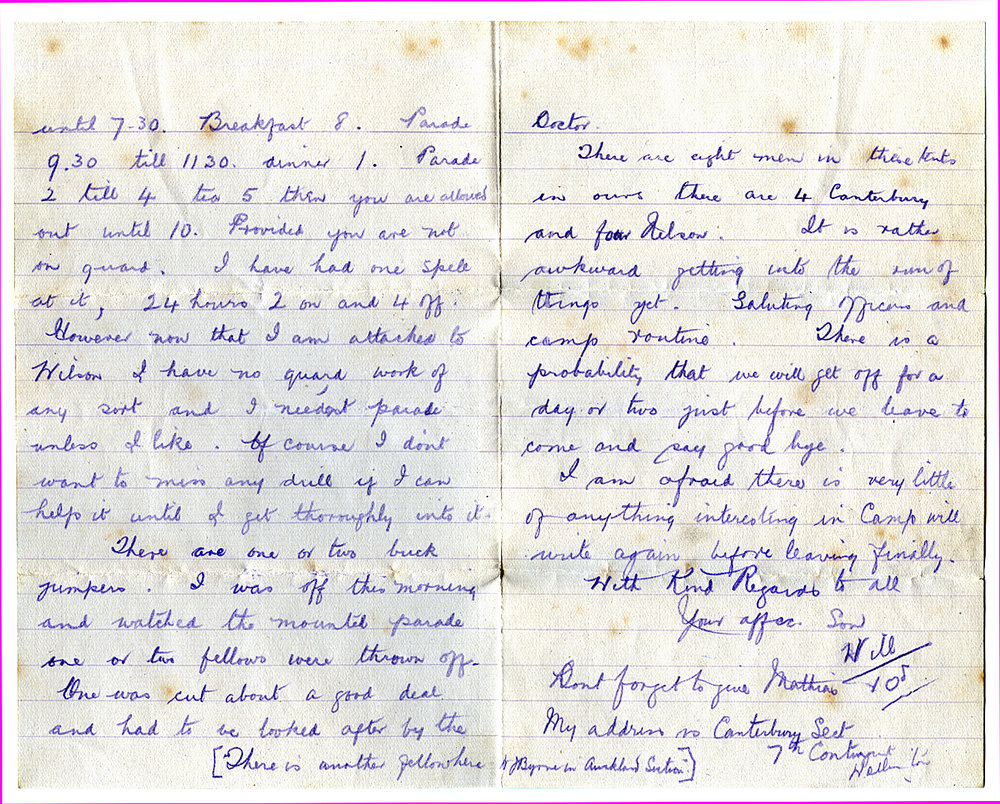 until 7-30. Breakfast 8. Parade
9.30 till 1130. dinner 1. Parade
2 till 4 tea 5 then you are allowed
out until 10. Provided you are not
on guard. I have had one spell
at it, 24 hours 2 on and 4 off.
However now that I am attached to
Wilson I have no guard work of
any sort and I need'ent parade
unless I like. Of course I dont
want to miss any drill if I can
help it until I get thoroughly into it.
There are one or two buck
jumpers. I was off this morning
and watched the mounted parade
one or two fellows were thrown off.
One was cut about a good deal
and had to be looked after by the
Doctor.
There are eight men in these tents
in ours there are 4 Canterbury
and four Nelson. It is rather
awkward getting into the run of
things yet. Saluting officers and
camp routine. There is a
probability that we will get off for a
day or two just before we leave to
come and say good bye.
I am afraid there is very little
of anything interesting in Camp will
write again before leaving finally.
With Kind Regards to all
Your affec. Son
Will
Dont forget to give Mathias 10s
My address is Canterbury Sect
7th Contingent
Wellington
[There is another fellow here W J Byrne in Auckland Section.]